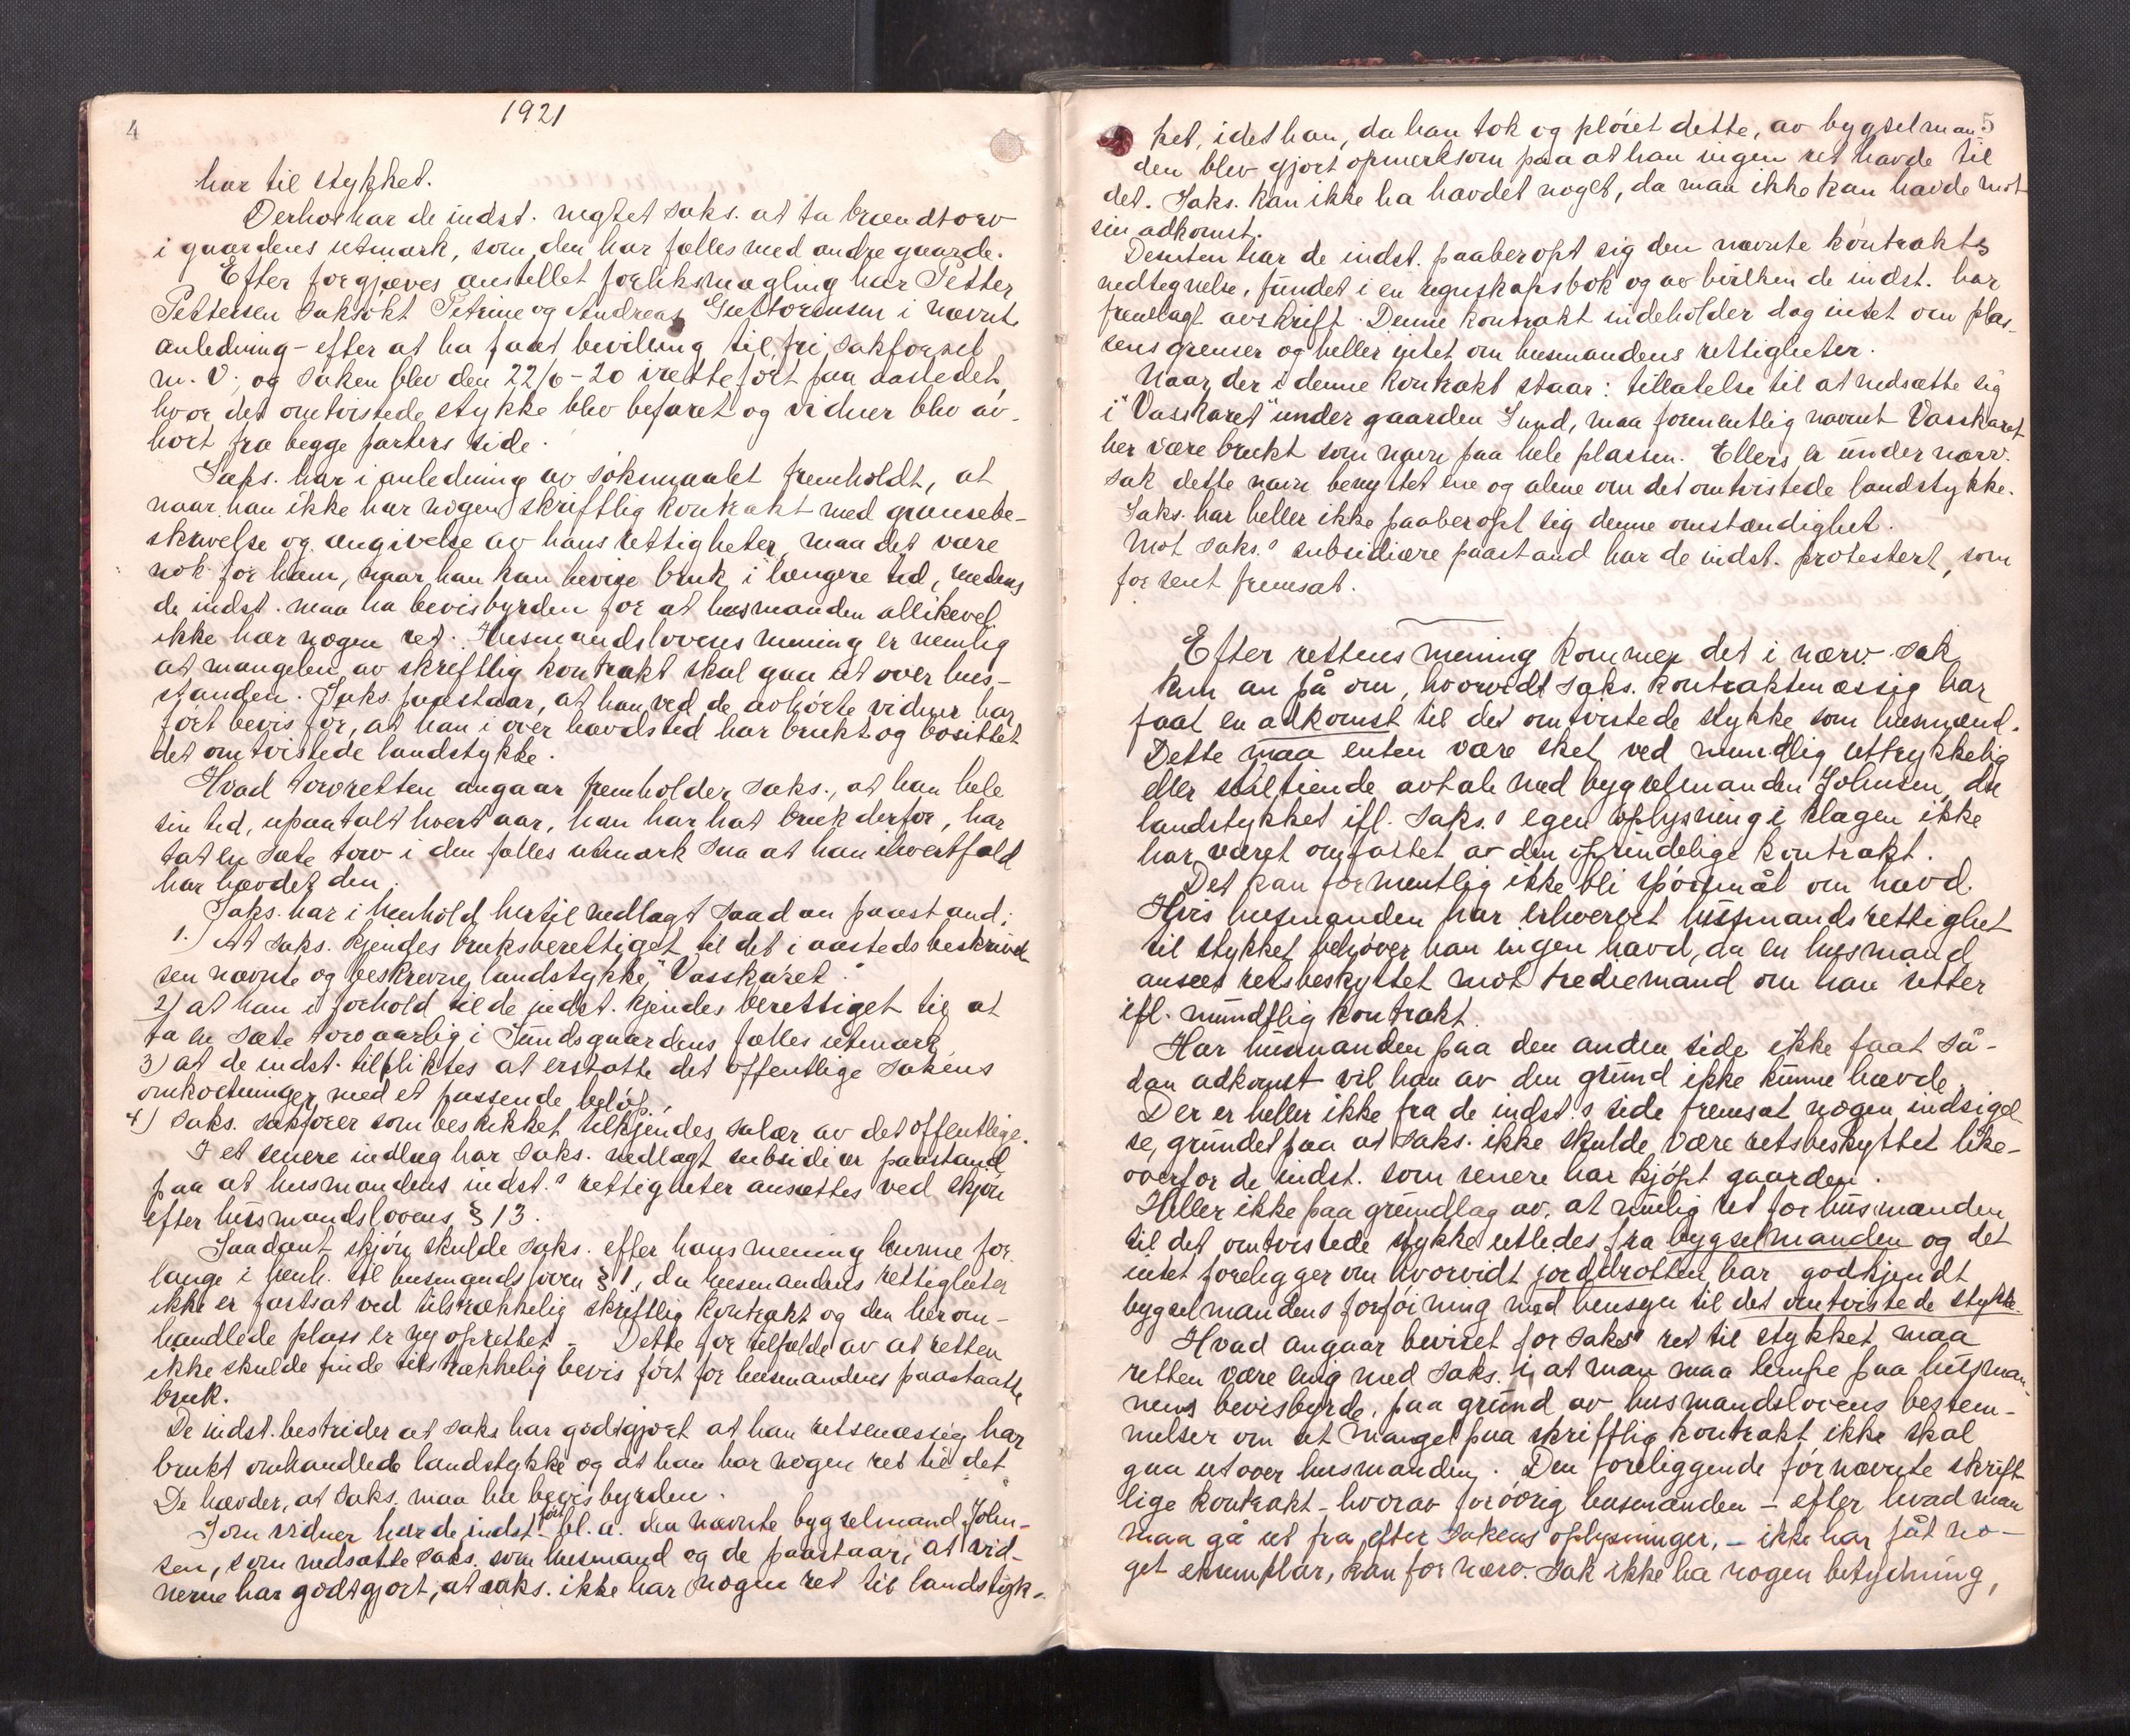 4
1921
har til stykket.
Derhos har de indst. negtet saks. at ta brændtorv
i gaardens utmark, som den har fælles med andre gaarde.
Efter forgjæves anstillet forliksmægling har Petter
Pettersen saksøkt Petrine og Andreas Guttormsen i nævnte
anledning - efter at ha faat bevilling til fri sakførsel
m. v., og saken blev den 22/6-20 iretteført paa aastedet,
hvor det omtvistede stykke blev befaret og vidner blev av-
hørt fra begge parters side.
Saks. har i anledning av søksmaalet fremholdt, at
naar han ikke har nogen skriftlig kontrakt med grænsebe-
skrivelse og angivelse av hans rettigheter, maa det være
nok for ham, naar han kan bevise bruk i længere tid, medens
de indst. maa ha bevisbyrden for at husmanden allikevel
ikke har nogen ret. Husmandslovens mening er nemlig
at mangelen av skriftlig kontrakt skal gaa ut over hus-
standen. Saks. paastaar, at han ved de avhørte vidner har
ført bevis for, at han i over hævdstid har brukt og besittet
det omtvistede landstykke.
Hvad torvretten angaar fremholder saks., at han hele
sin tid, upaatalt hvert aar, han har hat bruk derfor, har
tat en sæte torv i den fælles utmark saa at han ihvertfald
har hævdet den.
Saks. har i henhold hertil nedlagt saadan paastand:
1. At saks. kjendes bruksberettiget til det i aastedsbeskrivel-
sen nævnte og beskrevne landstykke "Vasskaret".
2) at han i forhold til de indst. kjendes berettiget til at
ta en sæte torv aarlig i Sundsgaardens fælles utmark
3) at de indst. tilpliktes at erstatte det offentlige sakens
omkostninger med et passende beløp,
4) saks. sakfører som beskikket tilkjendes salær av det offentlige.
I et senere indlæg har saks. nedlagt subsidiær paastand
paa at husmandens indst.s rettigheter ansættes ved skjøn
efter husmandslovens § 13.
Saadant skjøn skulde saks. efter hans mening kunne for-
lange i henh. til husmandsloven § 1, da husmandens rettigheter
ikke er fastsat ved tilstrækkelig skriftlig kontrakt og den herom-
handlede plass er ny oprettet - Dette for tilfælde av at retten
ikke skulde finde tilstrækkelig bevis ført for husmandens paastaatte
bruk.
De indst. bestrider at saks har godtgjort at han retsmæssig har
brukt omhandlede landstykke og at han har nogen ret til det
De hævder, at saks. maa ha bevisbyrden.
Som vidner har de indst. ført bl. a. den nævnte bygselmand John-
sen, som nedsatte saks. som husmand og de paastaar, at vid-
nerne har godtgjort, at saks. ikke har nogen ret til landstyk-
5
ket, idet han, da han tok og pløiet dette, av bygselman-
den blev gjort opmerksom paa at han ingen ret havde til
det. Saks. kan ikke ha hævdet noget, da man ikke kan hævde mot
sin adkomst.
Desuten har de indst. paaberopt sig den nævnte kontrakts
nedtegnelse, fundet i en regnskapsbok og av hvilken de indst. har
fremlagt avskrift. Denne kontrakt indeholder dog intet om plas-
sens grenser og heller intet om husmandens rettigheter.
Naar der i denne kontrakt staar: tillatelse til at nedsætte sig
i "Vasskaret" under gaarden Sund, maa formentlig navnet Vasskaret
her være brukt som navn paa hele plassen. Ellers er under nærv.
sak dette navn benyttet ene og alene om det omtvistede landstykke.
Saks. har heller ikke paaberopt sig denne omstændighet.
Mot saks.s subsidiære paastand har de indst. protestert, som
for sent fremsat.
Efter rettens mening kommer det i nærv. sak
kun an på om, hvorvidt saks. kontraktmæssig har
faat en adkomst til det omtvistede stykke som husmand.
Dette maa enten være sket ved mundtlig uttrykkelig
eller stiltiende avtale med bygselmanden Johnsen, da
landstykket ifl. saks.s egen oplysning i klagen ikke
har været omfattet av den oprindelige kontrakt.
Det kan formentlig ikke bli spørsmål om hævd.
Hvis husmanden har erhvervet husmandsrettighet
til stykket behøver han ingen hævd, da en husmand
ansees retsbeskyttet mot trediemand om han sitter
ifl. mundtlig kontrakt.
Har husmanden paa den anden side ikke faat så-
dan adkomst vil han av den grund ikke kunne hævde.
Der er heller ikke fra de indst.s side fremsat nogen indsigel-
se, grundet paa at saks. ikke skulde være retsbeskyttet like-
overfor de indst. som senere har kjøpt gaarden.
Heller ikke paa grundlag av, at mulig ret for husmanden
til det omtvistede stykke utledes fra bygselmanden og det
intet foreligger om hvorvidt jorddrotten har godkjendt
bygselmandens forføining med hensyn til det omtvistede stykke.
Hvad angaar beviset for saks' ret til stykket maa
retten være enig med saks. i, at man maa lempe paa husman-
nens bevisbyrde, paa grund av husmandslovens bestem-
melser om at mangel paa skriftlig kontrakt ikke skal
gaa utover husmanden. Den foreliggende førnævnte skrift-
lige kontrakt - hvorav forøvrig husmanden - efter hvad man
maa gå ut fra efter sakens oplysninger, - ikke har fåt no-
get eksemplar, kan for nærv. sak ikke ha nogen betydning,